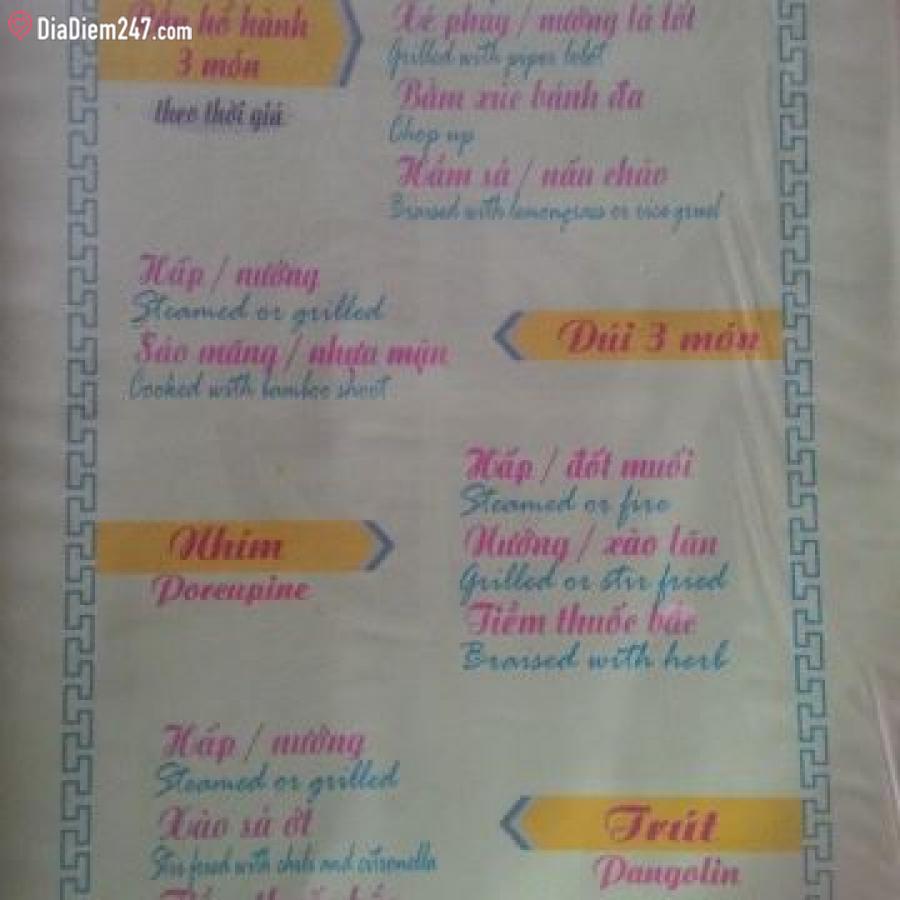 DiaDiem247.com
hổ hành
3 món
theo thời giá
Xé phay / nướng lá lốt
Grilled with piper lolot
Bằm xúc bánh đa
Chop up
Hầm sả / nấu cháo
Braised with lemongrass or rice gruel
Hấp / nướng
Steamed or grilled
Sáo măng / nhựa mận
Cooked with bamboo shoot
Dúi 3 món
Hấp / đốt muối
Steamed or fire
Nướng / xào lăn
Grilled or stir fried
Tiềm thuốc bắc
Braised with herb
Nhím
Porcupine
Hấp / nướng
Steamed or grilled
Xào sả ớt
Stir fried with chili and citronella
Trút
Pangolin